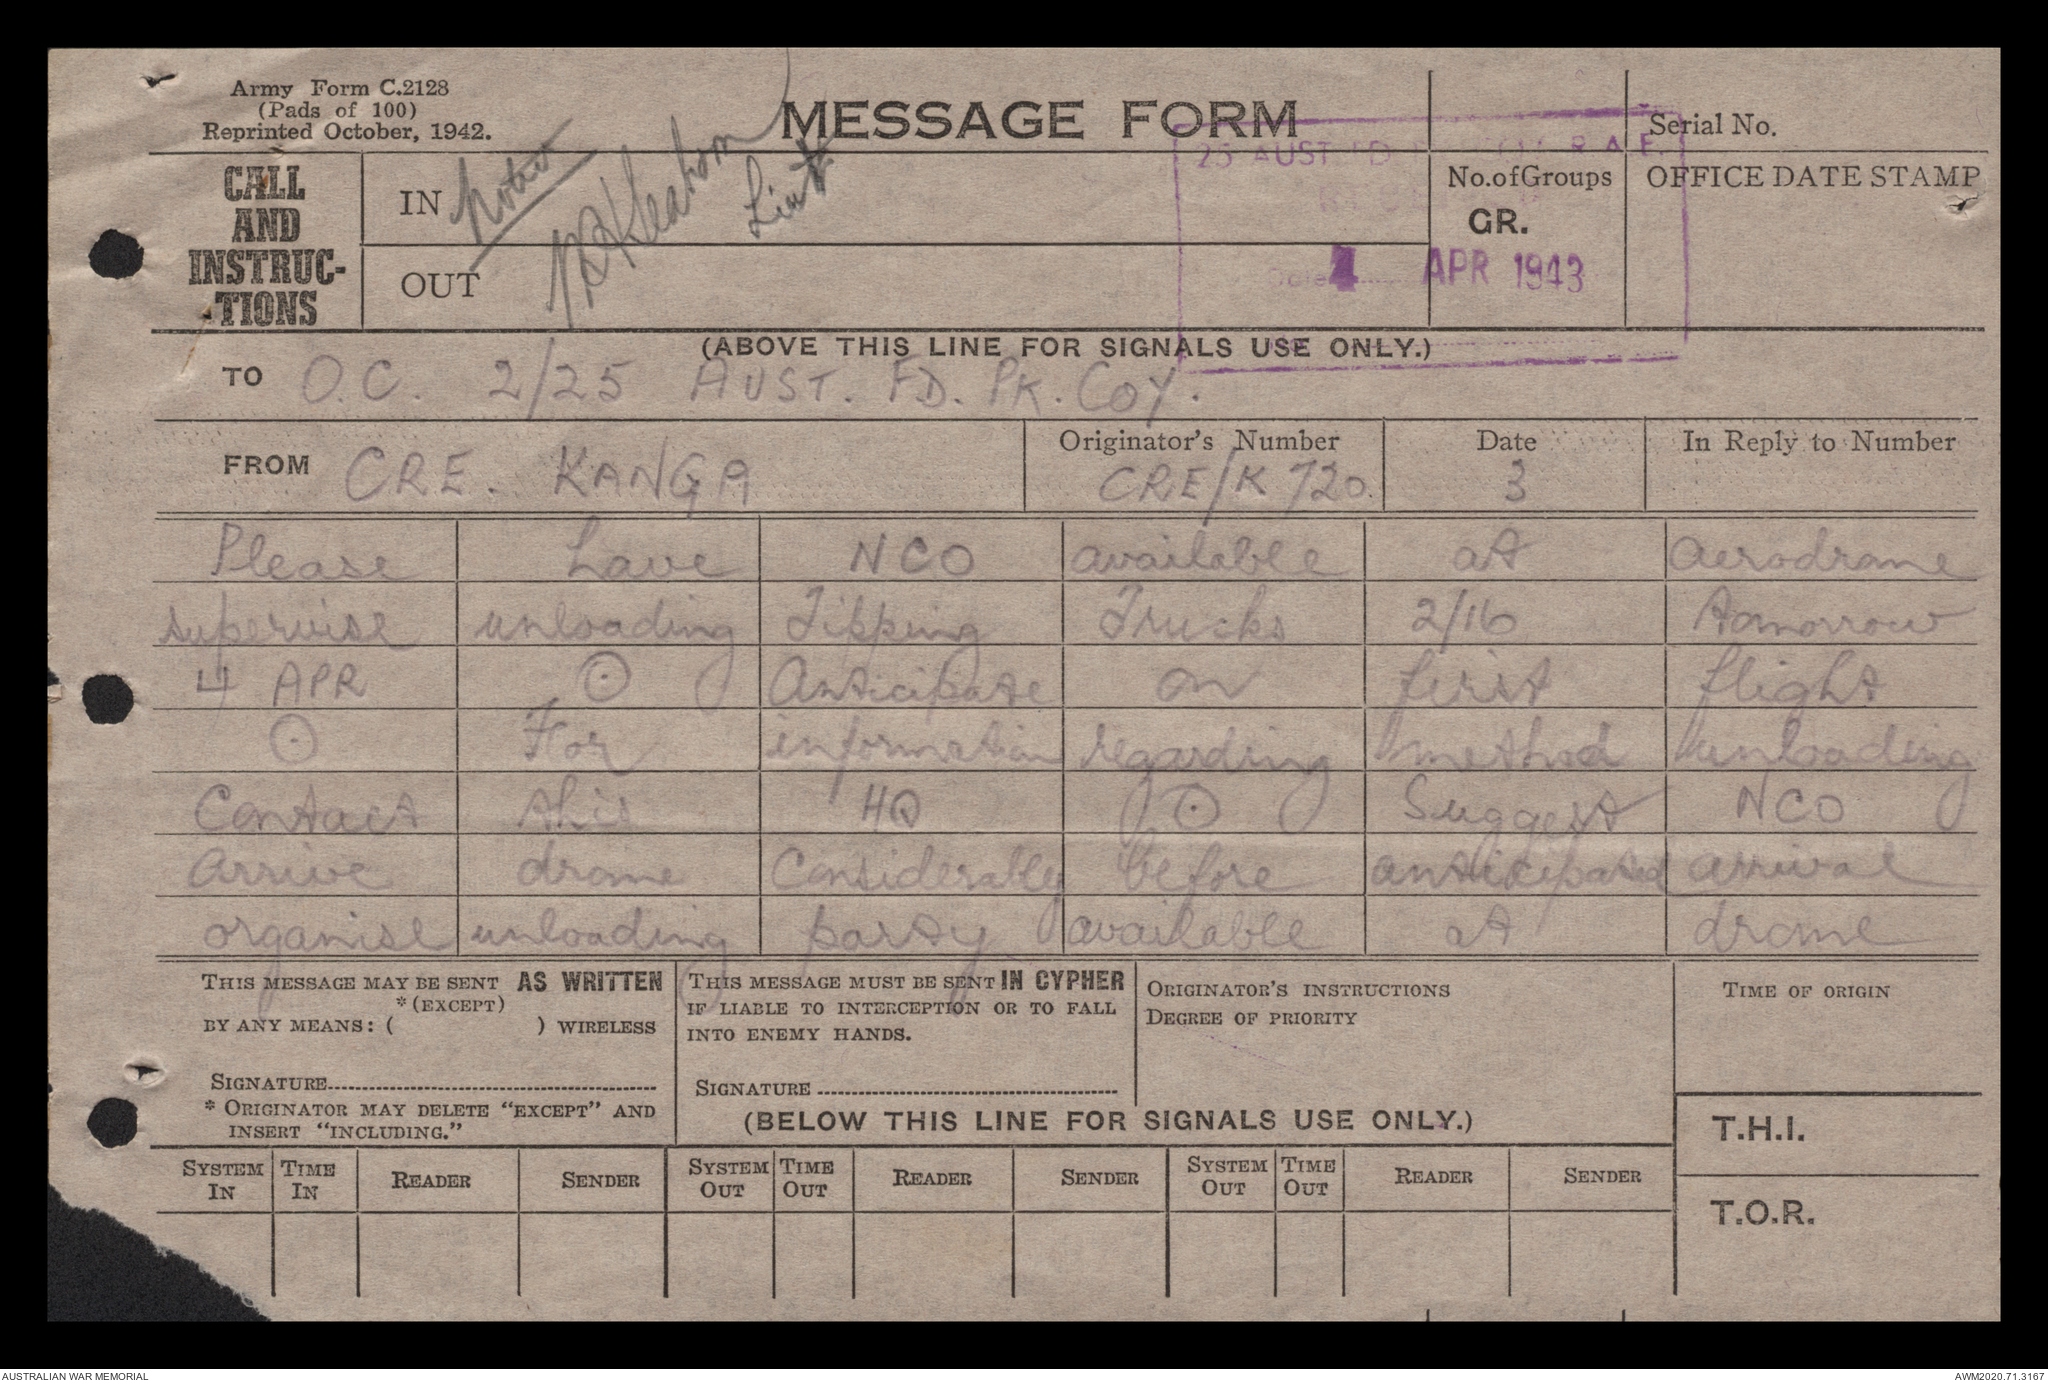 Army Form C.2128
(Pads of 100)
Reprinted October, 1942.
MESSAGE FORM
Serial No.
25 AUST. FD. R.A.E.
CALL
AND
INSTRUC-
TIONS
IN
Noted
Lieut
OUT
No. of Groups
GR.
OFFICE DATE STAMP
Date 4 APR 1943
(ABOVE THIS LINE FOR SIGNALS USE ONLY.)
TO O.C. 2/25 AUST. FD. PK. COY.
FROM CRE. KANGA
Originator's Number
CRE/K 720.
Date
3
In Reply to Number
Please have NCO available at aerodrome
supervise unloading Tipping Trucks 2/16 tomorrow
4 APR ⊙ Anticipate on first flight
⊙ For information regarding method unloading
Contact this HQ ⊙ Suggest NCO
Arrive drome Considerably before anticipated arrival
organise unloading party available at drome
THIS MESSAGE MAY BE SENT AS WRITTEN
*(EXCEPT)
BY ANY MEANS: ( ) WIRELESS
SIGNATURE
* ORIGINATOR MAY DELETE "EXCEPT" AND
INSERT "INCLUDING."
THIS MESSAGE MUST BE SENT IN CYPHER
IF LIABLE TO INTERCEPTION OR TO FALL
INTO ENEMY HANDS.
SIGNATURE
ORIGINATOR'S INSTRUCTIONS
DEGREE OF PRIORITY
TIME OF ORIGIN
(BELOW THIS LINE FOR SIGNALS USE ONLY.)
T.H.I.
T.O.R.
SYSTEM IN TIME IN READER SENDER SYSTEM OUT TIME OUT READER SENDER SYSTEM OUT TIME OUT READER SENDER
AUSTRALIAN WAR MEMORIAL
AWM2020.71.3167